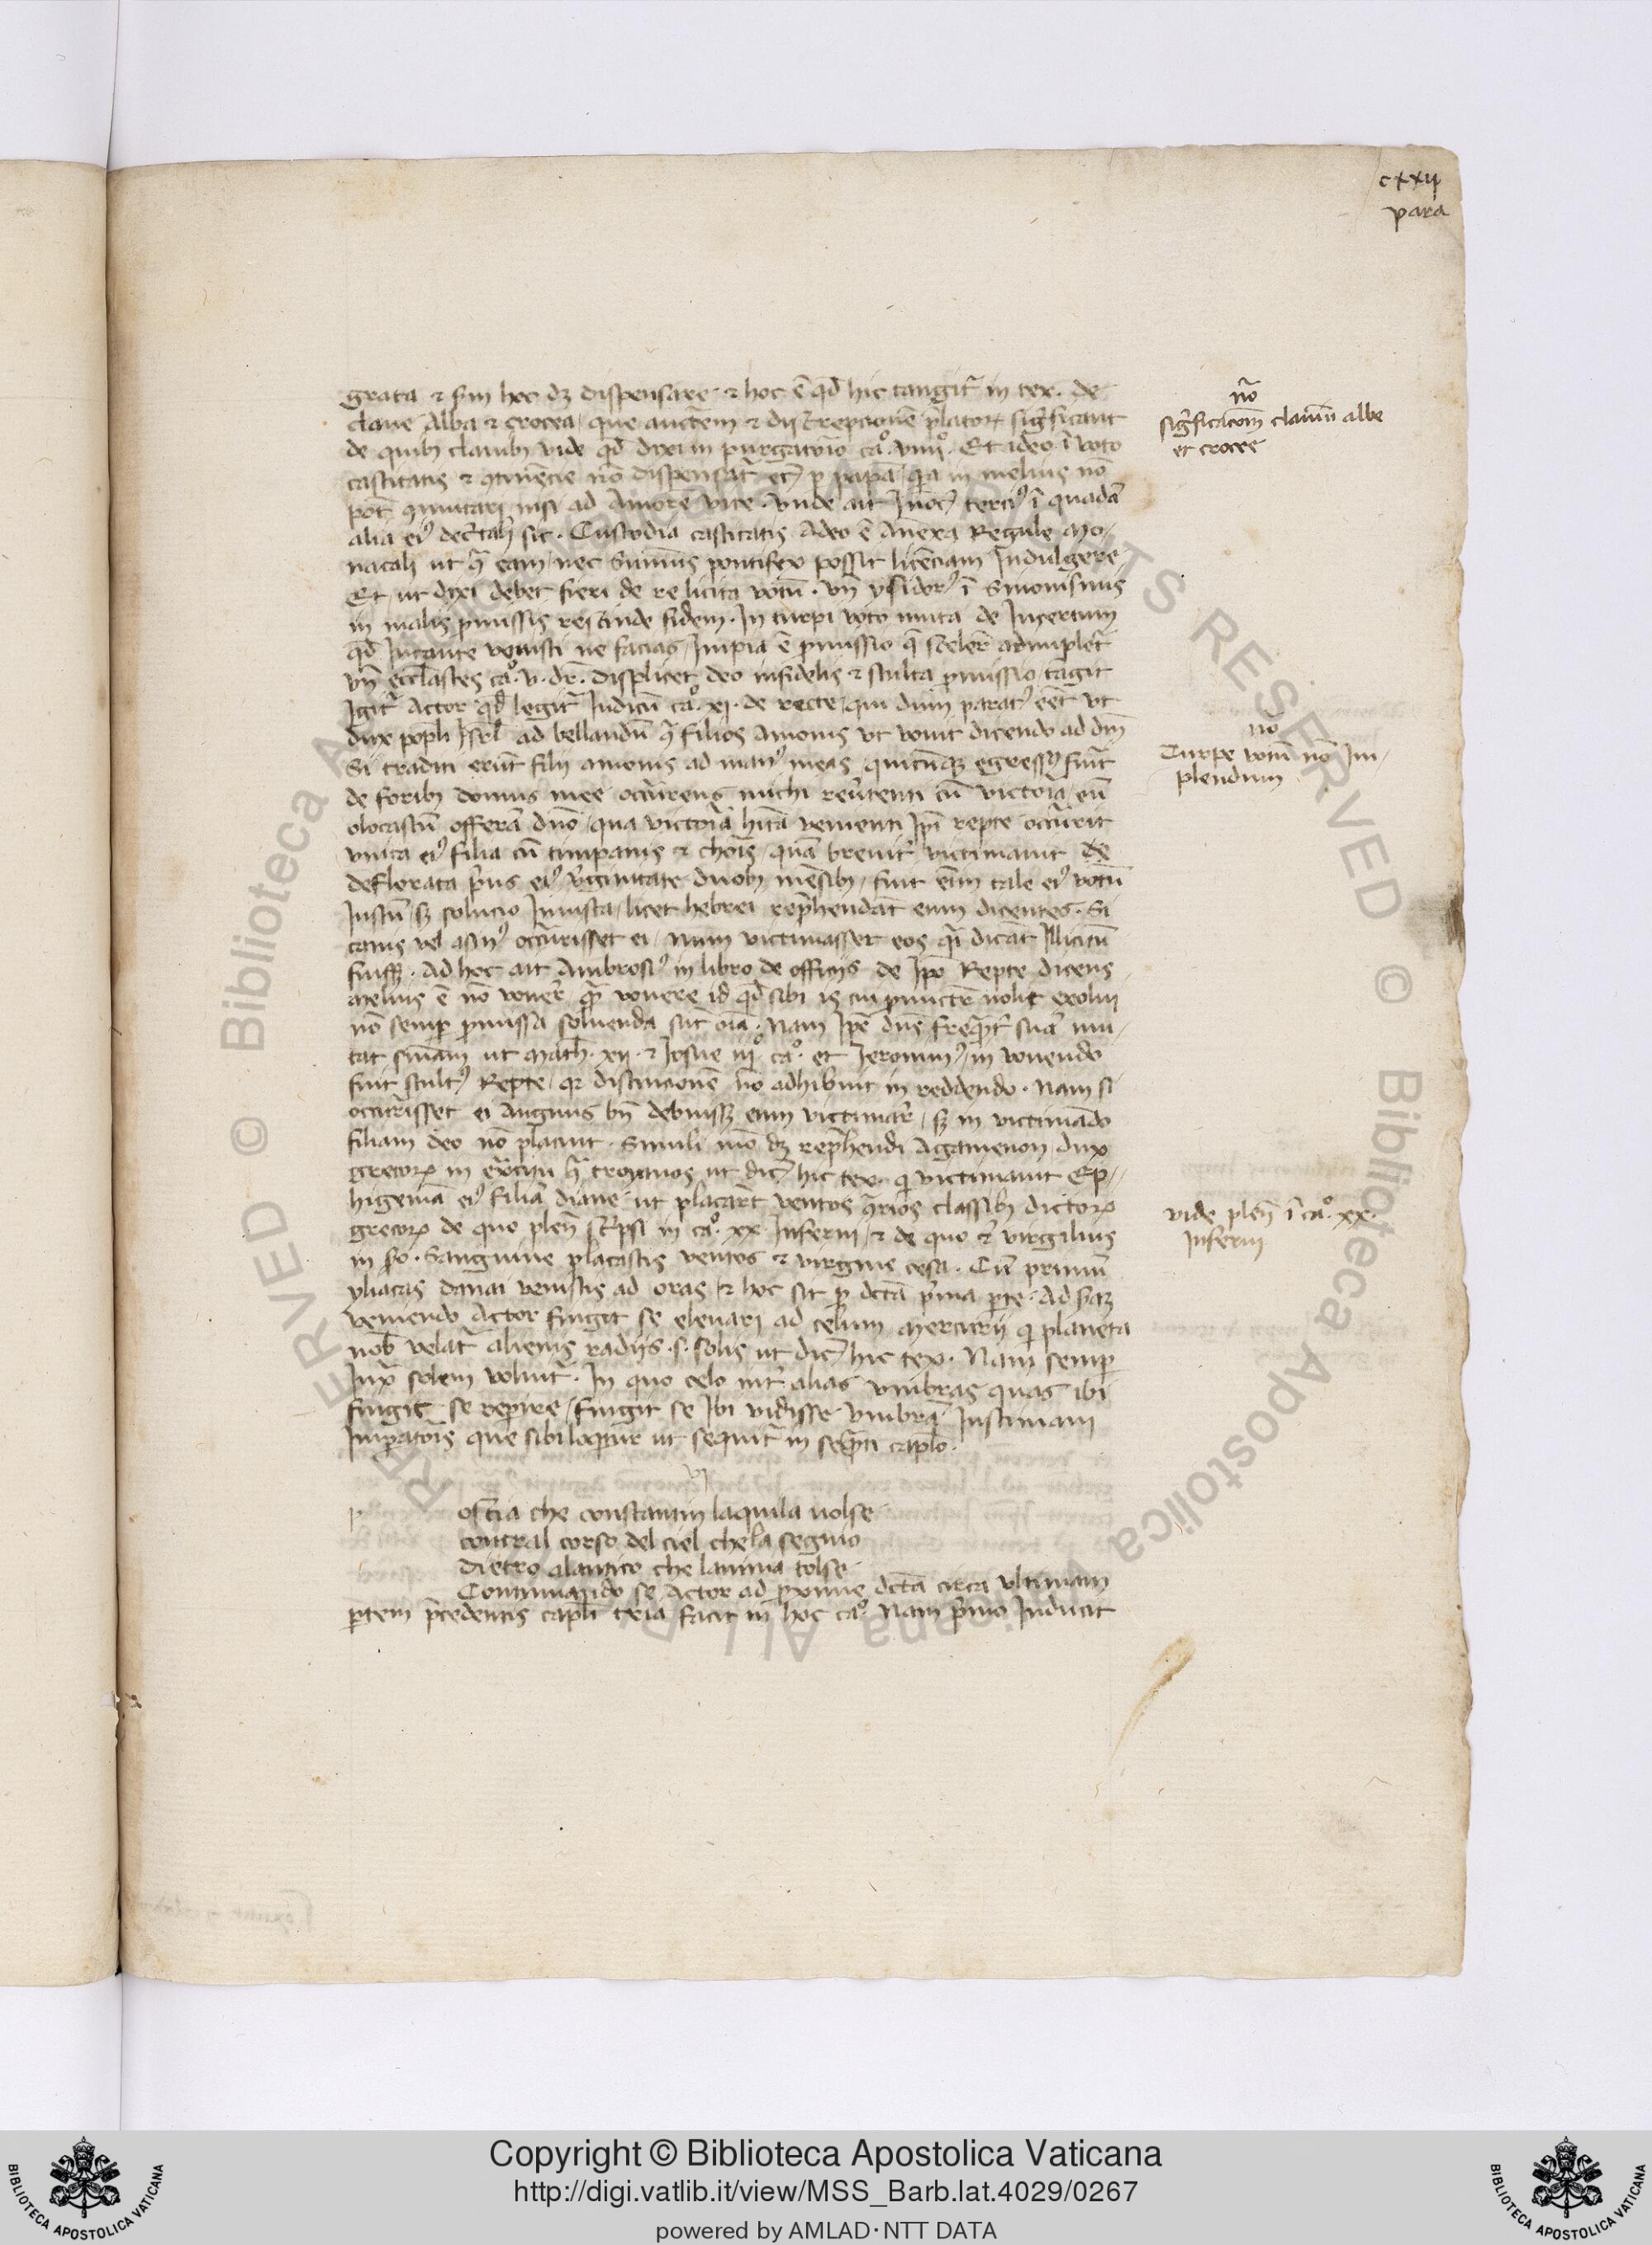 cxxij
para
grata & sm̄ hoc dꝫ dispensare & hoc ē qd̄ hic tangit̄ in tex. de
claue Alba & crocea que auctem̄ & discrepcionē p̄latoꝝ sigficant
de quibꝫ clauibꝫ vide qd̄ dixi in purgatorio cao. viiijo. Et adeo ī voto
castitatis & ꝯtinēcie nō dispensat̄ ec̄ ꝑ papā qꝛ in melius nō
pot̄ ꝯmutari nisi ad Amorē vite. vnde ait Inoc̄ tercꝰ ī quadā
alia eiꝰ decretali sic. Custodia castitatis Adeo ē Anexa Regule mo-
nacali ut ꝯ eam nec sumus pontifex possit licēciam Indulgere
Et ut dixi debet fieri de re licita votū. vn̄ ysidorꝰ ī sinonimis
in malis ꝓmissis rescinde fidem. In turpi voto muta de Incertum
qd̄ Incaute vouisti ne facias Impia ē ꝓmissio q̄ scelere adimplet̄
vn̄ ecclāstes cao. v. dr̄. displicet deo infidelis & stulta ꝓmissio tāgit
Igit̄ Actor qd̄ legit̄ Iudicū cao. xj. de recte qui dum paratꝰ eēt ut
dux popli Isrl̄ ad bellandū ꝯ filios Amonis ut vouit dicendo ad dm̄
Si traditi erūt filij amonis ad manꝰ meas quicunꝫ egressꝰ fuit̄
de foribꝫ domus mee occurens michi reuertenti cū victoria eū
olocastū offerā dn̄o qua victoria hita venienti Ip̄i repte occurit
vnica eiꝰ filia cū timpanis & choris quā breuit̄ victimauit de
deflorata prius eiꝰ v̄ginitate duobꝫ mēsibꝫ fuit em̄ tale eiꝰ votū
Iustū sꝫ solucio Iniusta licet hebrei rep̄hendāt eum dicentes. Si
canis vel asinꝰ occurisset ei num victimasset eos q̄i dicat Illicitū
fuisse. Ad hoc ait Ambrosiꝰ in libro de officijs de Ip̄o Repte dicens
melius ē nō vouer̄ qꝫ vouere id qd̄ sibi is cui ꝓmictit̄ nolit exolui
nō semp̄ ꝓmissa soluenda sūt oīa. Nam Ip̄e dn̄s freqn̄t̄ suā mu-
tat sniam ut math̄. xij. & Iosue iijo cao. et Ieronimꝰ in vouendo
fuit stultꝰ Repte qꝛ discrecionē nō adhibuit in reddendo. Nam si
occurisset ei Angnus bn̄ debuisset eum victimare sꝫ in victimādo
filiam deo nō placuit. Simili mō dꝫ rep̄hendi Agamenon dux
grecoꝝ in ex̄citu ꝯ troyanos ut dic̄ hic tex. qi victimauit Ep-
higeniā eiꝰ filiā diane ut placaret ventos ꝯrios classibꝫ dictoꝝ
grecoꝝ de quo plen̄ scripsi in cao. xx. Inferni & de quo & virgilius
in so. Sanguine placastis ventos & virgine cesa. Cū primū
yliacas danai venistis ad oras & hoc sit ꝑ dcta prima parte. Ad scdam
veniendo Actor fingit se eleuari ad celum mercurij qi planeta
nob̄ velat̄ alienis radijs. s. solis ut dic̄ hic tex. Nam semp̄
Iuxª solem voluit̄. In quo celo int̄ alias vmbras quas ibi
fingit se rep̄ire fingit se Ibi vidisse vmbrā Iustiniani
Imp̄atoris que sibi loquit̄ ut sequit̄ in seqn̄ti caplo.
vj
p oscia che constantin laquila uolse
contral corso del ciel chela seguio
dietro alantico che lauina tolse
Continuando se Actor ad ꝓxime dcta circa ultimam
partem p̄cedentis capli tria facit in hoc cao. Nam primo Inducit
nō
sigficacōm clauiū albe
et crocee
nō
Turpe votū nō Im-
plendum
vide plen̄ ī cao. xx.
Inferni
Copyright © Biblioteca Apostolica Vaticana
http://digi.vatlib.it/view/MSS_Barb.lat.4029/0267
powered by AMLAD·NTT DATA
BIBLIOTECA APOSTOLICA VATICANA
BIBLIOTECA APOSTOLICA VATICANA